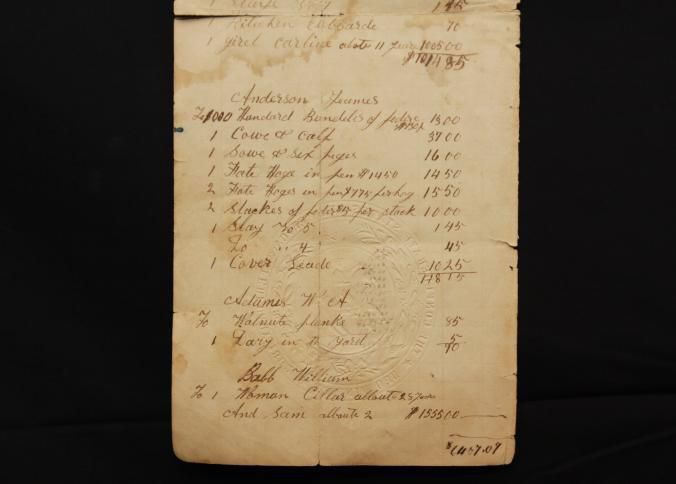 1 145
1 Kitchen Cubbarde 70
1 girel Carline aboute 11 years 1005 00
$ 1485
Anderson Jeames
To 1000 Hundard Bundles of foder 13 00
1 Cowe & Calf 37 00
1 Sowe & Six piges 16 00
1 Fate Hoge in pen $14 50 14 50
2 Fate Hoges in pen $7 75 per hog 15 50
2 Stackes of foder $5 per stack 10 00
1 Slay No 5 1 45
To " 4 45
1 Cover Leade 10 25
118 15
Adames W. A
To Walnute planke 85
1 in the yard 5
90
Babb William
To 1 Woman Cillar aboute 25 years
And Sam aboute 2 $ 1555 00